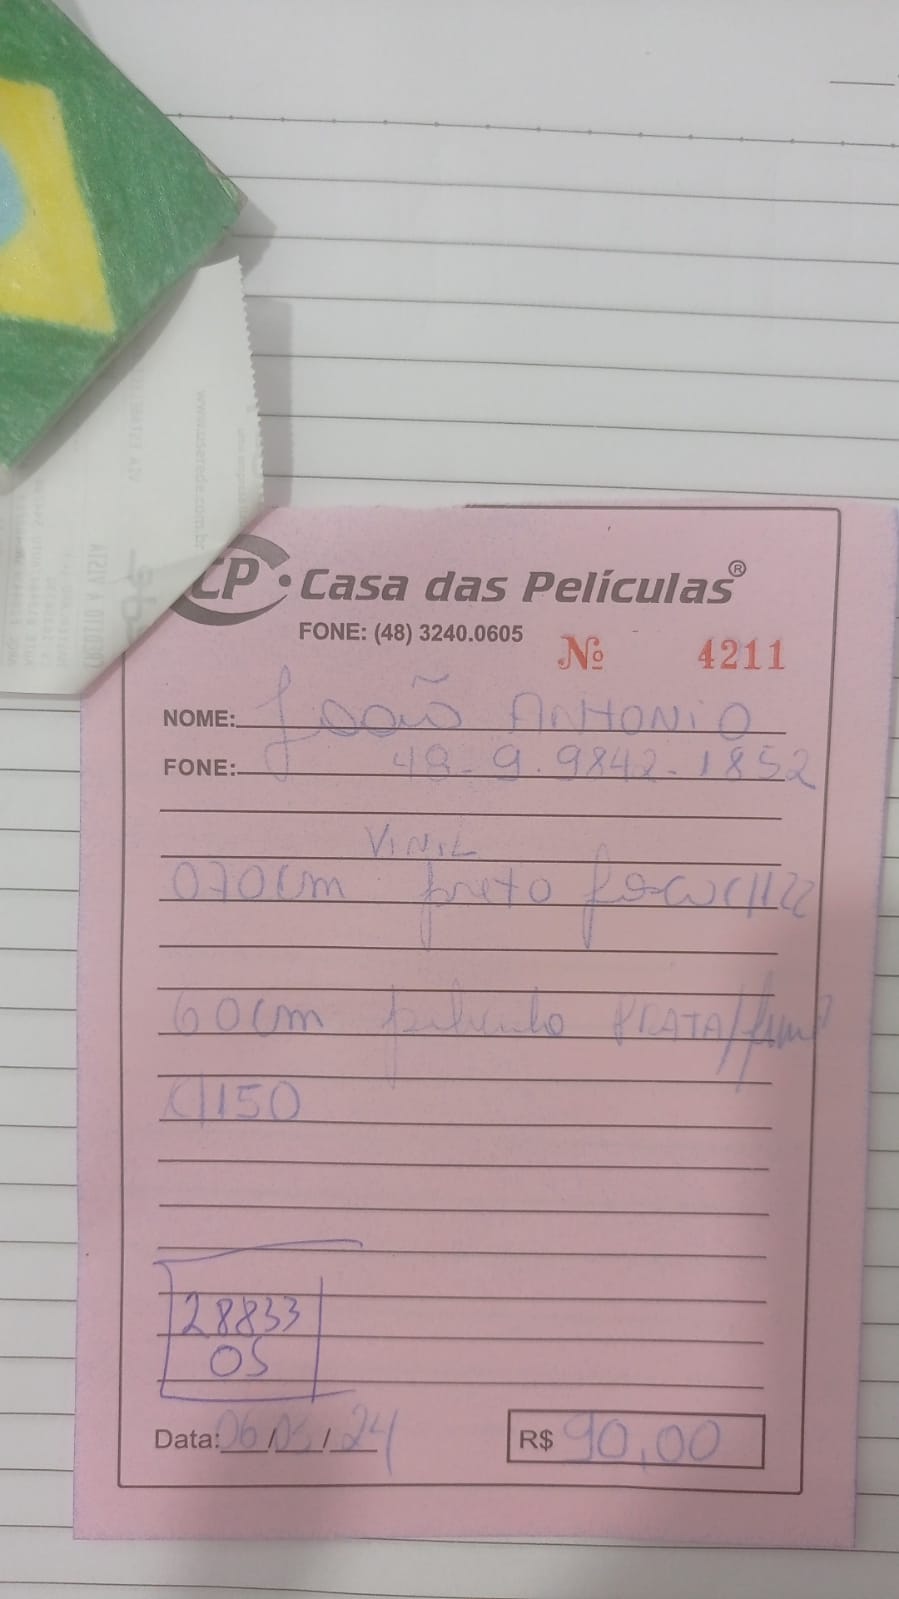 CP • Casa das Películas®
FONE: (48) 3240.0605
Nº 4211
NOME: João ANTONIO
FONE: 48-9.9842-1852
VINIL
070cm preto fosco c/122
60cm PRATA/
c/150
28833
OS
Data: 06/05/24
R$ 90,00